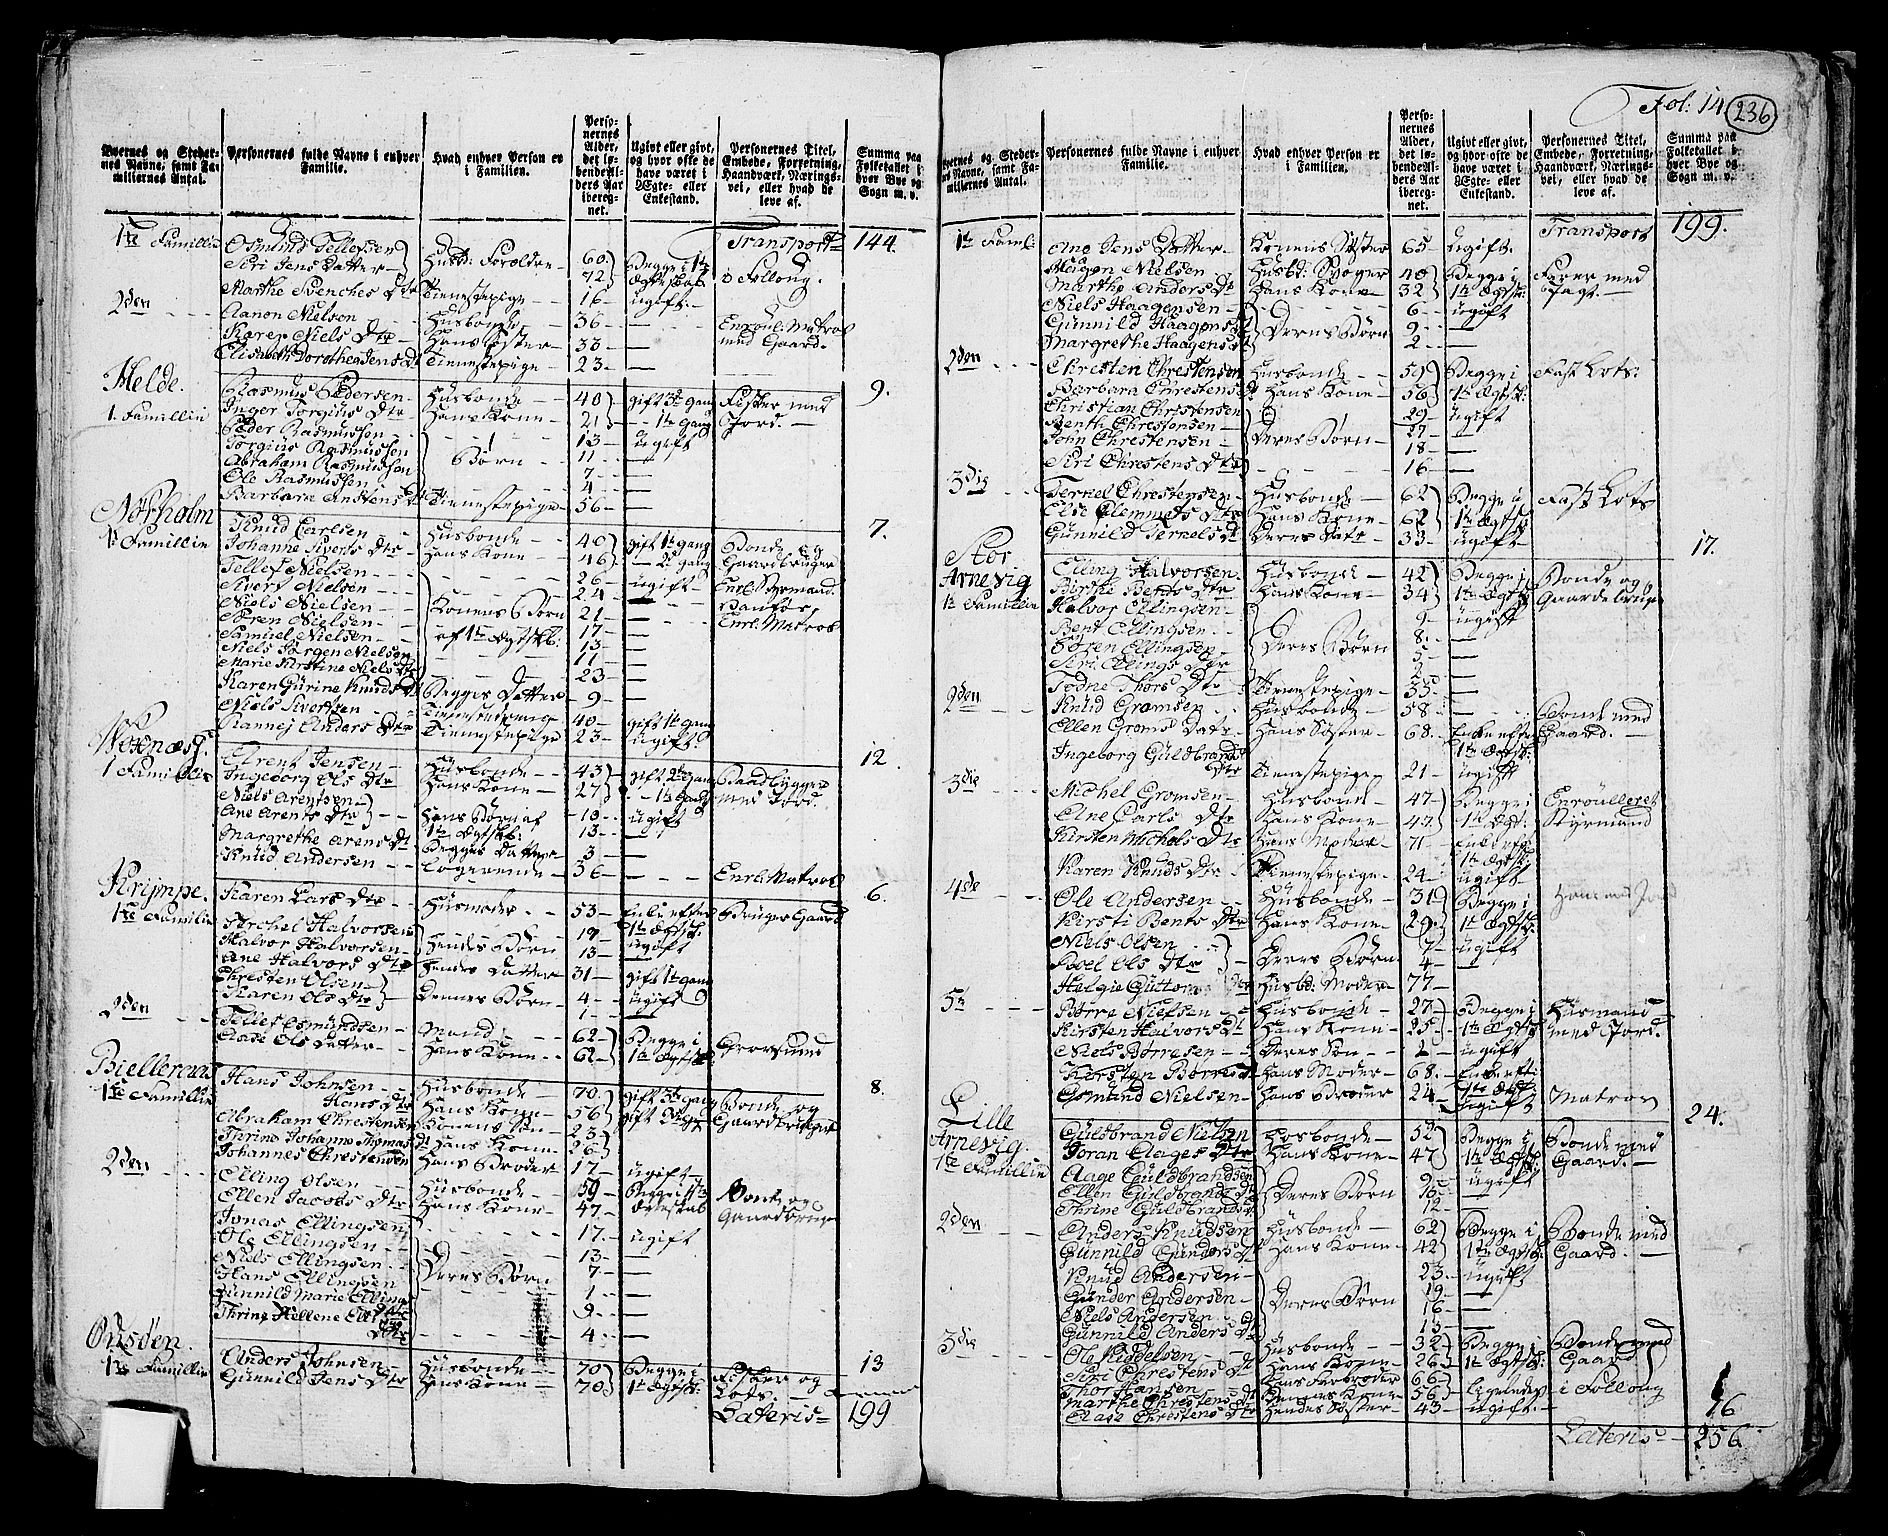 Fol: 14 236
Byernes og Stedernes Navne, samt Familiernes Antal. | Personernes fulde Navne i enhver Familie. | Hvad enhver Person er i Familien. | Personernes Alder, det løbende Alders Aar iberegnet. | Ugivt eller givt, og hvor ofte de have været i Ægte- eller Enkestand. | Personernes Titel, Embede, Forretning, Haandværk, Næringsvei, eller hvad de leve af. | Summa paa Folketallet i hver Bye og Sogn m. v.
Transport 144.
1te Familie Osmund Tellefsen Husbd: Forældre 60 Begge i 1te
Siri Jens Datter 72 Ægteskab
Marthe Benthes Dtr Tienestepige 16 ugift
2den Aanon Nielsen Husbonde 36 — Enroul. Matros
Karen Niels Dtr Hans Søster 33 — med Gaard.
Elisabeth Dorothea Jens Dt Tienestepige 23 —
9.
Helde.
1. Familie Rasmus Pedersen Husbonde 40 gift 3de gang Fisker med
Inger Torgius Dtr Hans Kone 21 1te gang Jord.
Peder Rasmussen 13 ugift
Torgius Rasmussen Børn 11 —
Abraham Rasmussen 7 —
Ole Rasmussen 4 —
Barbara Anstens Dt Tienestepige 56 —
7.
1te Familie Knud Carlsen Husbonde 40 gift 1te gang Bonde og
Johanne Siverts Dtr Hans Kone 46 2den gang Gaardbruger
Tellef Nielsen 26 ugift Enrl. Styrmand
Sivert Nielsen 24 —
Niels Nielsen Konens Børn 21 —
Søren Nielsen af 1te Ægtskb. 17 — Enrl. Matros
Samuel Nielsen 13 —
Niels Jørgen Nielsen 11 —
Marie Kirstine Niels Dtr 23 —
Karen Gurine Knuds Dt Begges Datter 9 —
Niels Sivertsen Tienestedreng 40 gift 1te gang
Anders Dtr Tienestepige 23 ugift
12.
1 Familie Arent Jensen Husbonde 43 gift 2den gang Baadbygger
Ingeborg Ols Dtr Hans Kone 27 1te Gang med Jord.
Niels Arentsen Hans Børn af 10 ugift
Ane Arents Dtr 1te Ægtskb: 13 —
Margrethe Arens Dt Begges Datter 3 —
Knud Andersen Logerende 36 — Enrl. Matros
6.
Krympe.
1te Familie Karen Lars Dtr Husmoder 53 Enke efter Bruger Gaard
Archel Halvorsen Hendes Børn 19 1te Ægtsk.
Halvor Halvorsen 13 ugift
Ane Halvors Dtr Hendes Datter 31 gift 1te gang
Christen Olsen Dennes Børn 4 ugift
Karen Ols Dtr 1 —
2den Tellef Osmundsen Mand 62 Begge i
Aase Ols Datter Hans Kone 62 1te Ægtsk.
8.
1te Familie Hans Johnsen Husbonde 70 gift 3de gang Bonde og
Hans Dtr Hans Kone 56 gift Gaardbruger
Abraham Chrestensen Konens Søn 23
Thrine Johanne Thomas Dt Hans Kone 26
Johannes Chrestensen Hans Broder 17 ugift
2den Elling Olsen Husbonde 59 Begge i 1te Bonde og
Ellen Jacobs Dtr Hans Kone 47 Ægteskab Gaardbruger
Jonas Ellingsen 17 ugift
Ole Ellingsen 13 —
Niels Ellingsen Deres Børn 7 —
Hans Ellingsen 1 —
Gunnild Marie Ellings 9 —
Thrine Hellene Ell Dtr 4 —
13
1te Familie Anders Johnsen Husbonde 70 Begge i Fisker og
Gunnild Jens Dtr Hans Kone 70 1te Ægtsk: Lots.
Lateris 199

Byernes og Stedernes Navne, samt Familiernes Antal. | Personernes fulde Navne i enhver Familie. | Hvad enhver Person er i Familien. | Personernes Alder, det løbende Alders Aar iberegnet. | Ugivt eller givt, og hvor ofte de have været i Ægte- eller Enkestand. | Personernes Titel, Embede, Forretning, Haandværk, Næringsvei, eller hvad de leve af. | Summa paa Folketallet i hver Bye og Sogn m. v.
Transport 199.
1te Famil: Ane Jens Datter Konens Søster 65 ugift
Haagen Nielsen Husbd: Svoger 40 Begge i Farer med
Marthe Anders Dtr Hans Kone 32 1te Ægtsk: Jagt.
Niels Haagensen 6 ugift
Gunnild Haagens Dt Deres Børn 9 —
Margrethe Haagens Dt 2 —
2den Chresten Chrestensen Husbonde 59 Begge i Fast Lots:
Barbara Chrestens Dt Hans Kone 56 1te Ægtsk:
Christian Chrestensen 29 ugift
Benth Chrestensen 27 —
John Chrestensen Deres Børn 18 —
Siri Chrestens Dtr 16 —
3die Terkel Chrestensen Husbonde 62 Begge i Fast Lots
Else Clemmets Dtr Hans Kone 62 1te Ægtsk
Gunnild Terkels Dt Deres Datr 33 ugift
17.
Stor
Arnevig
1te Familie Elling Halvorsen Husbond 42 Begge i Bonde og
Birthe Bents Dtr Hans Kone 34 1te Ægtsk Gaardebruger
Halvor Ellingsen 9 ugift
Bent Ellingsen 8 —
Søren Ellingsen Deres Børn 5 —
Siri Ellings Dtr 2 —
Todne Thors Dtr Tienestepige 35 —
2den Knud Gromsen Husbonde 58 Bonde med
Ellen Groms Datr Hans Søster 68 Enke efter Gaard.
1te Ægtsk:
Ingeborg Guldbrands Dtr Tienestepige 21 ugift
3die Michel Gromsen Husbonde 47 Begge i Enroulleret
Ane Carls Dtr Hans Kone 47 1te Ægt: Styrmand
Kirsten Michels Dtr Hans Moder 71 Enke eft:
1te Ægtsk:
Karen Knuds Dtr Tienestepige 24 ugift
4de Ole Andersen Husbonde 31 Begge i
Kirsti Bents Dtr Hans Kone 29 1te Ægtsk:
Niels Olsen Deres Børn 7 ugift
Boel Ols Dtr 4 —
Helgie Guttorms Dtr Husbd: Moder 77 —
5te Børre Nielsen Husbonde 27 Begge i Husmand
Kirsten Halvors Dt Hans Kone 25 1te Ægtsk med Jord.
Niels Børresen Deres Søn 1 ugift
Kirsten Børres Dt Hans Moder 68 Enke eft:
Osmund Nielsen Hans Broder 24 ugift Matros
24.
Lille
Arnevig.
1te Familie Guldbrand Nielsen Husbonde 52 Begge i Bonde med
Joran Aages Dtr Hans Kone 47 1te Ægtsk Gaard.
Aage Guldbrandsen 9 ugift
Ellen Guldbrands Dt Deres Børn 16 —
Thrine Guldbrands Dt 12 —
2den Anders Knudsen Husbonde 62 Begge i Bonde med
Gunnild Gunders Dt Hans Kone 42 1te Ægtsk: Gaard.
Knud Andersen 23 ugift
Gunder Andersen 19 —
Niels Andersen Deres Børn 16 —
Gunnild Anders Dt 13 —
3die Ole Kiddelsen Husbonde 32 Begge i Bonde med
Siri Chrestens Dt Hans Kone 26 1te Ægtsk: Gaard
Thor Jansen Hans Farbroder 66
Marthe Chrestens Dt Hannes Kone 56 ligeledes i Follong
Aase Chrestens Dtr Hendes Søster 43 ugift
16
Lateris 256